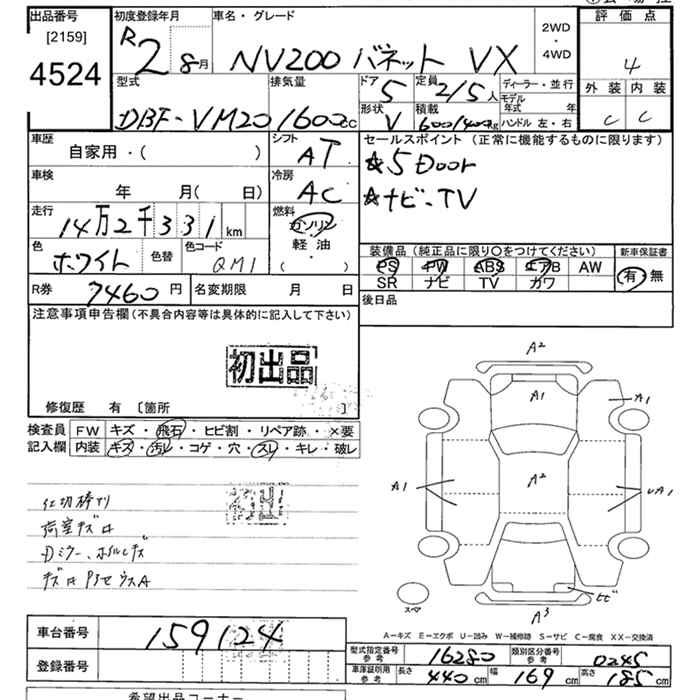 出品番号
[2159]
4524
初度登録年月
R2 8月
車名・グレード
NV200 バネット VX
2WD
・
4WD
評価点
4
外装 内装
C C
型式
DBF-VM20
排気量
1600cc
ドア
5
定員
2/5人
ディーラー・並行
モデル年式 年
形状
V
積載
600/400kg
ハンドル 左・右
車歴
自家用・( )
シフト
AT
セールスポイント (正常に機能するものに限ります)
☆5Door
☆ナビ-TV
車検
年 月( 日)
冷房
AC
走行
14万2千331km
燃料
ガソリン
軽油
( ・ )
色
ホワイト
色替
色コード
QM1
装備品 (純正品に限り○をつけてください)
PS PW ABS エアB AW
SR ナビ TV カワ
新車保証書
有 無
R券
7460円
名変期限 月 日
後日品
注意事項申告欄 (不具合内容等は具体的に記入して下さい)
初出品
修復歴 有 [箇所 ]
検査員記入欄
FW キズ・飛石・ヒビ割・リペア跡・×要
内装 キズ・汚レ・コゲ・穴・スレ・キレ・破レ
A2
A1
A1
A1
A2
A1
A3
スペア
仕切棒アリ
荷室キズ
Dミラー、
A-キズ E-エクボ U-凹み W-補修跡 S-サビ C-腐食 XX-交換済
車台番号
159124
登録番号
型式指定番号 参考
16280
類別区分番号 参考
0245
車庫証明用 参考
長さ 440cm 幅 169cm 高さ 185cm
希望出品コーナー